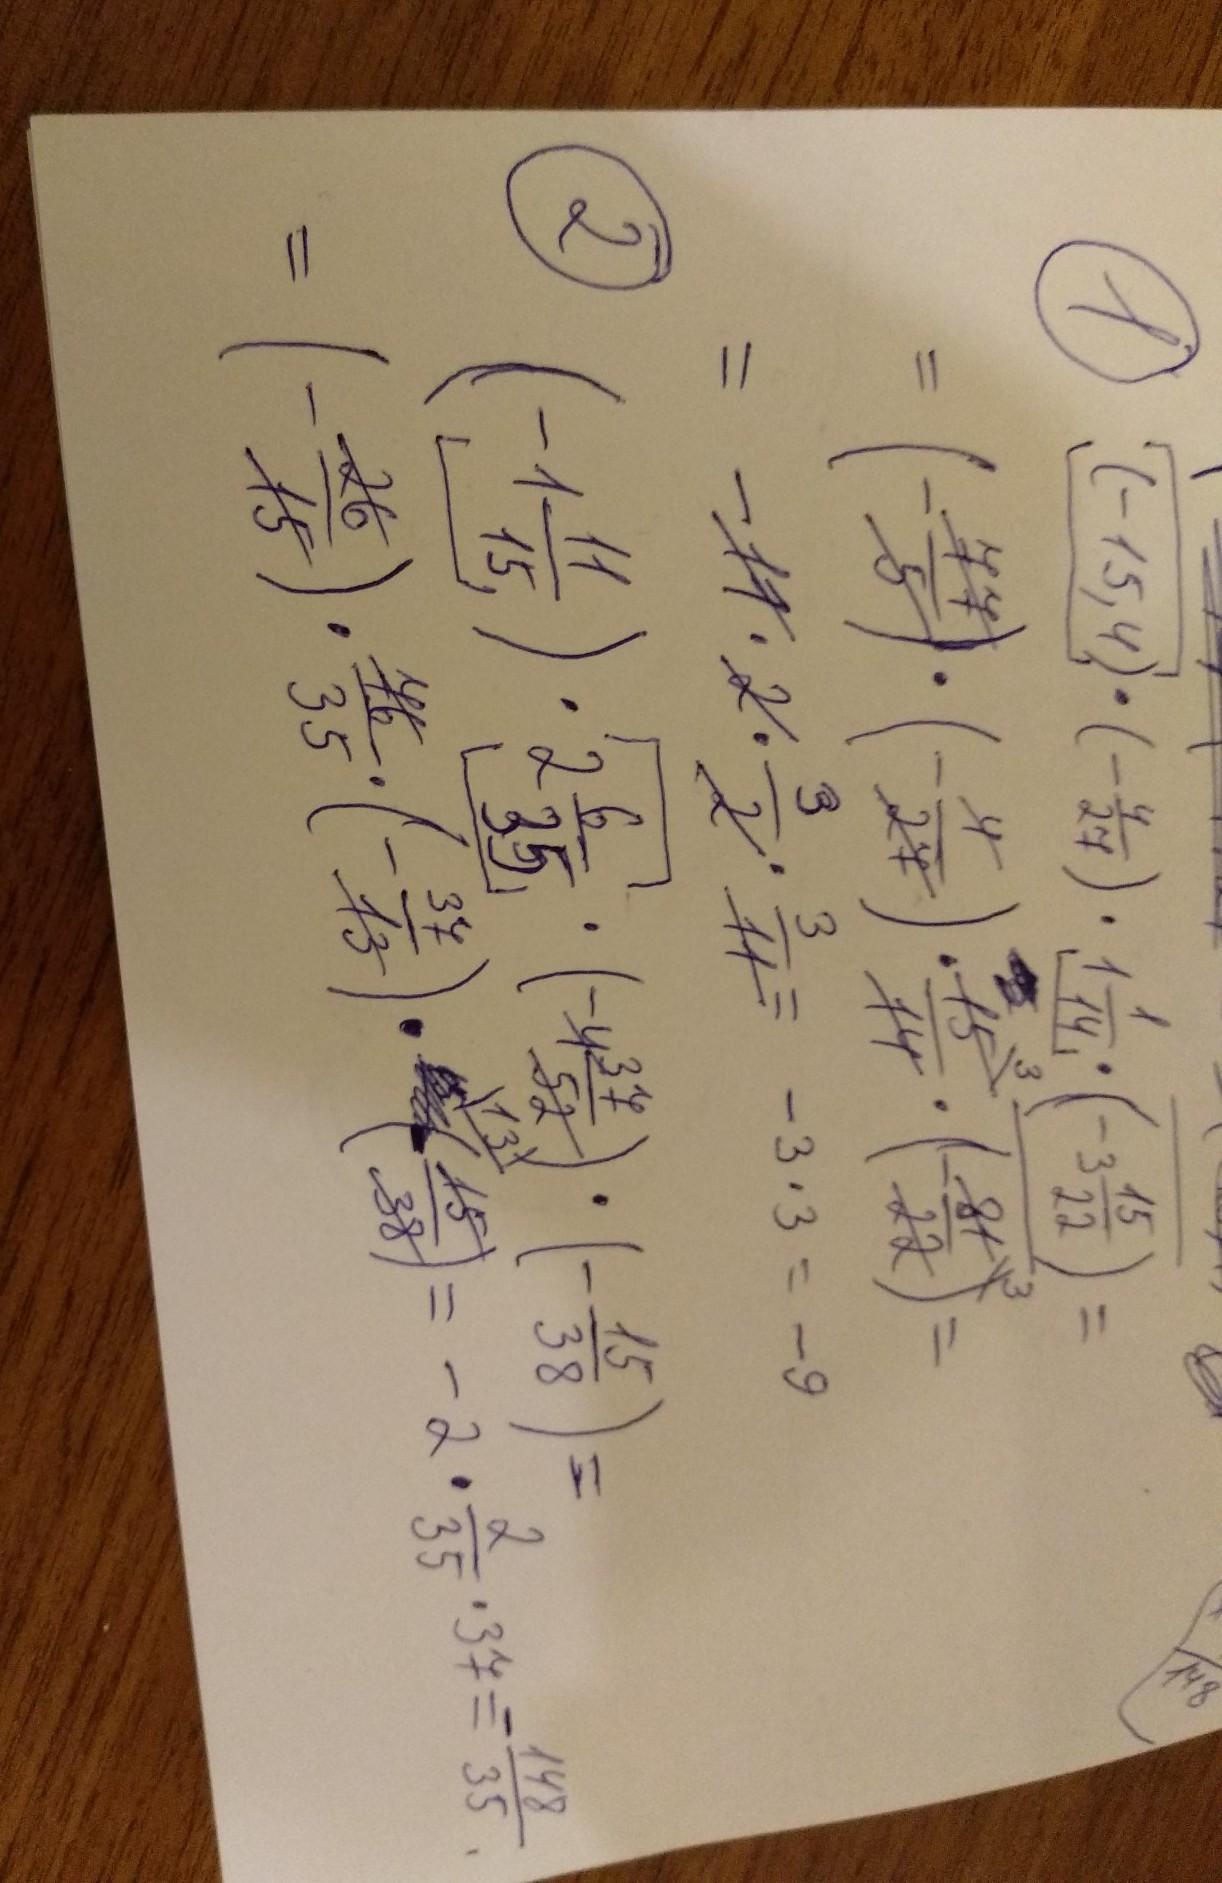 1
(-15,4) · (-4/27) · 1 1/14 · (-3 15/22) =
= (-77/5) · (-4/27) · 15/14 · (-81/22) =
= -11 · 2 · 3/2 · 3/11 = -3 · 3 = -9
2
(-1 11/15) · 2 6/35 · (-4 37/52) · (-15/38) =
= (-26/15) · 76/35 · (-37/13) · (15/38) = -2 · 2/35 · 37 = -148/35.
148